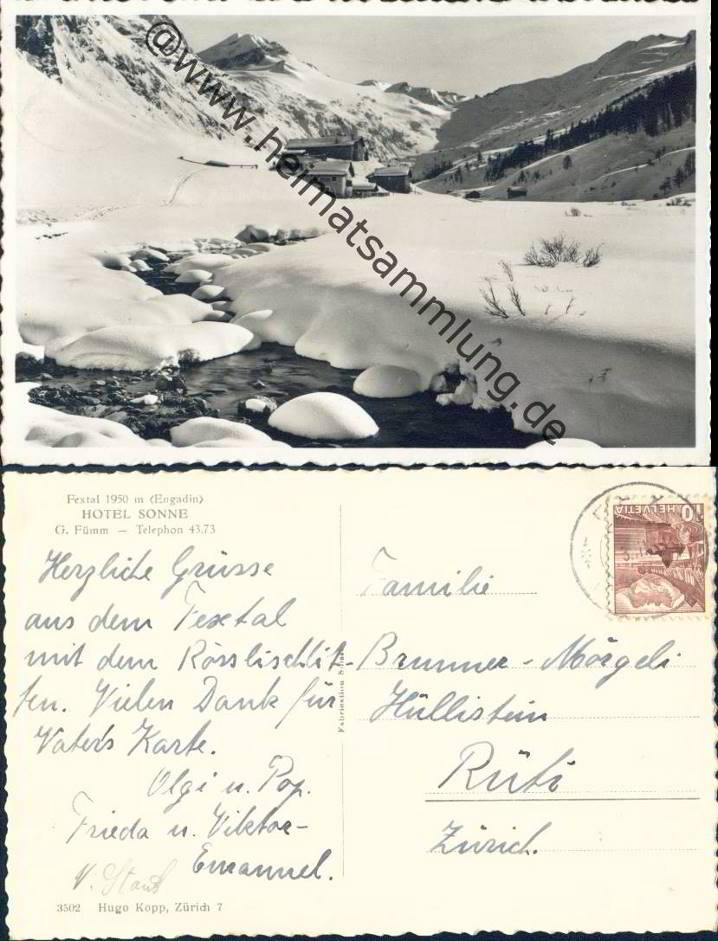 @www.heimatsammlung.de
Fextal 1950 m (Engadin)
HOTEL SONNE
G. Fümm — Telephon 43.73
Herzliche Grüsse
aus dem Fextal
mit dem Rösslischlit-
ten. Vielen Dank für
Vaters Karte.
Olgi u. Pop.
Frieda u. Viktor-
Emanuel.
V.
3502 Hugo Kopp, Zürich 7
HELVETIA
10
Familie
Brunner-Mörgeli
Hüllistein
Rüti
Zürich.